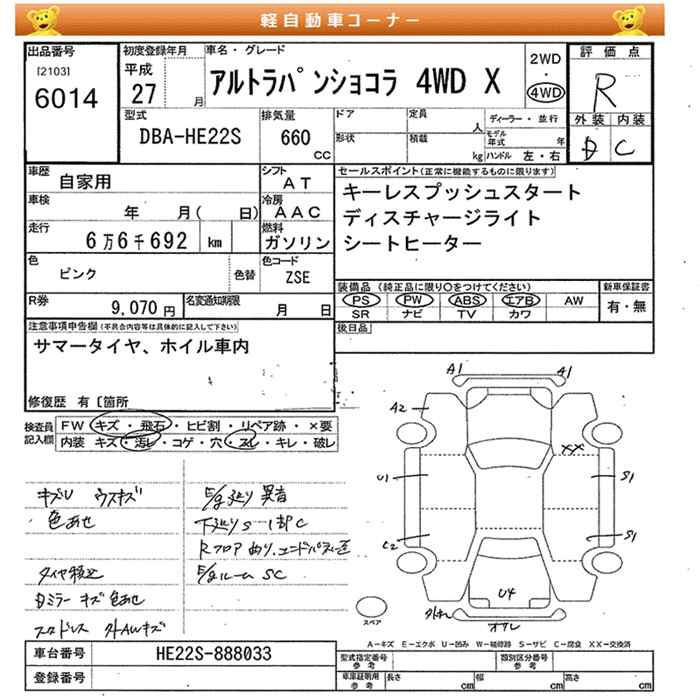 軽自動車コーナー
出品番号
[2103]
6014
初度登録年月
平成
27 月
車名・グレード
アルトラパンショコラ 4WD X
2WD
・
4WD
評価点
R
外装 内装
D C
型式
DBA-HE22S
排気量
660
CC
ドア
定員
人
ディーラー・並行
形状
積載
kg
モデル年式 年
ハンドル 左・右
車歴
自家用
シフト
AT
車検
年 月( 日)
冷房
AAC
走行
6万6千692 km
燃料
ガソリン
色
ピンク
色替
色コード
ZSE
R券
9,070 円
名変通知期限
月 日
セールスポイント(正常に機能するものに限ります)
キーレスプッシュスタート
ディスチャージライト
シートヒーター
装備品 (純正品に限り○をつけてください)
PS PW ABS エアB AW
SR ナビ TV カワ
新車保証書
有・無
後日品
注意事項申告欄(不具合内容等は具体的に記入して下さい)
サマータイヤ、ホイル車内
修復歴 有〔箇所
検査員記入欄
FW キズ・飛石・ヒビ割・リペア跡・×要
内装 キズ・汚レ・コゲ・穴・スレ・キレ・破レ
キズU ウスキズ
色あせ
タイヤ積込
Dミラー キズ 色あせ
スタドレス 外AWキズ
E/g廻り 異音
下廻りS一部C
E/gルーム SC
A1
A1
A2
XX
U1
S1
C2
S1
U4
スペア
A－キズ E－エクボ U－凹み W－補修跡 S－サビ C－腐食 XX－交換済
車台番号
HE22S-888033
登録番号
型式指定番号
参考
類別区分番号
参考
車庫証明用
参考
長さ cm
幅 cm
高さ cm